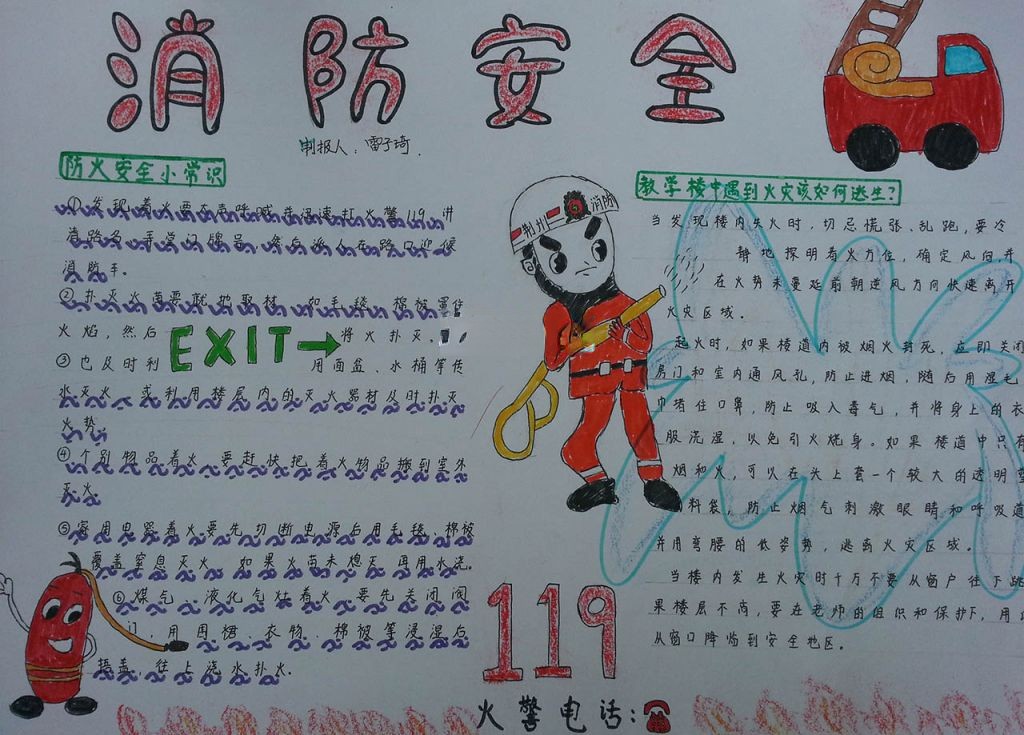 消防安全
制报人：雷子琦.
防火安全小常识
①发现着火要大声呼喊并迅速打火警119,讲
清路名、手掌门牌号，然后派人在路口迎候
消防车。
②扑灭火苗要就地取材，如毛毯、棉被罩住
火焰，然后将火扑灭。
EXIT→
③也及时利用面盆、水桶等传
水灭火，或利用楼层内的灭火器材及时扑灭
火势。
④个别物品着火，要赶快把着火物品搬到室外
灭火。
⑤家用电器着火要先切断电源后用毛毯、棉被
覆盖窒息灭火，如果火苗未熄灭，再用水浇。
⑥煤气、液化气灶着火，要先关闭阀
门，用围裙、衣物、棉被等浸湿后
捂盖，往上浇水扑火。
荆州
消防
119
火警电话：
教学楼中遇到火灾该如何逃生？
当发现楼内失火时，切忌慌张、乱跑，要冷
静地探明着火方位，确定风向，并
在火势未蔓延前朝逆风方向快速离开
火灾区域。
起火时，如果楼道内被烟火封死，应即关闭
房门和室内通风孔，防止进烟，随后用湿毛
巾堵住口鼻，防止吸入毒气，并将身上的衣
服浇湿，以免引火烧身。如果楼道中只有
烟和火，可以在头上套一个较大的透明塑
料袋，防止烟气刺激眼睛和呼吸道
并用弯腰的低姿势，逃离火灾区域。
当楼内发生火灾时千万不要从窗户往下跳
果楼层不高，要在老师的组织和保护下，用
从窗口降临到安全地区。